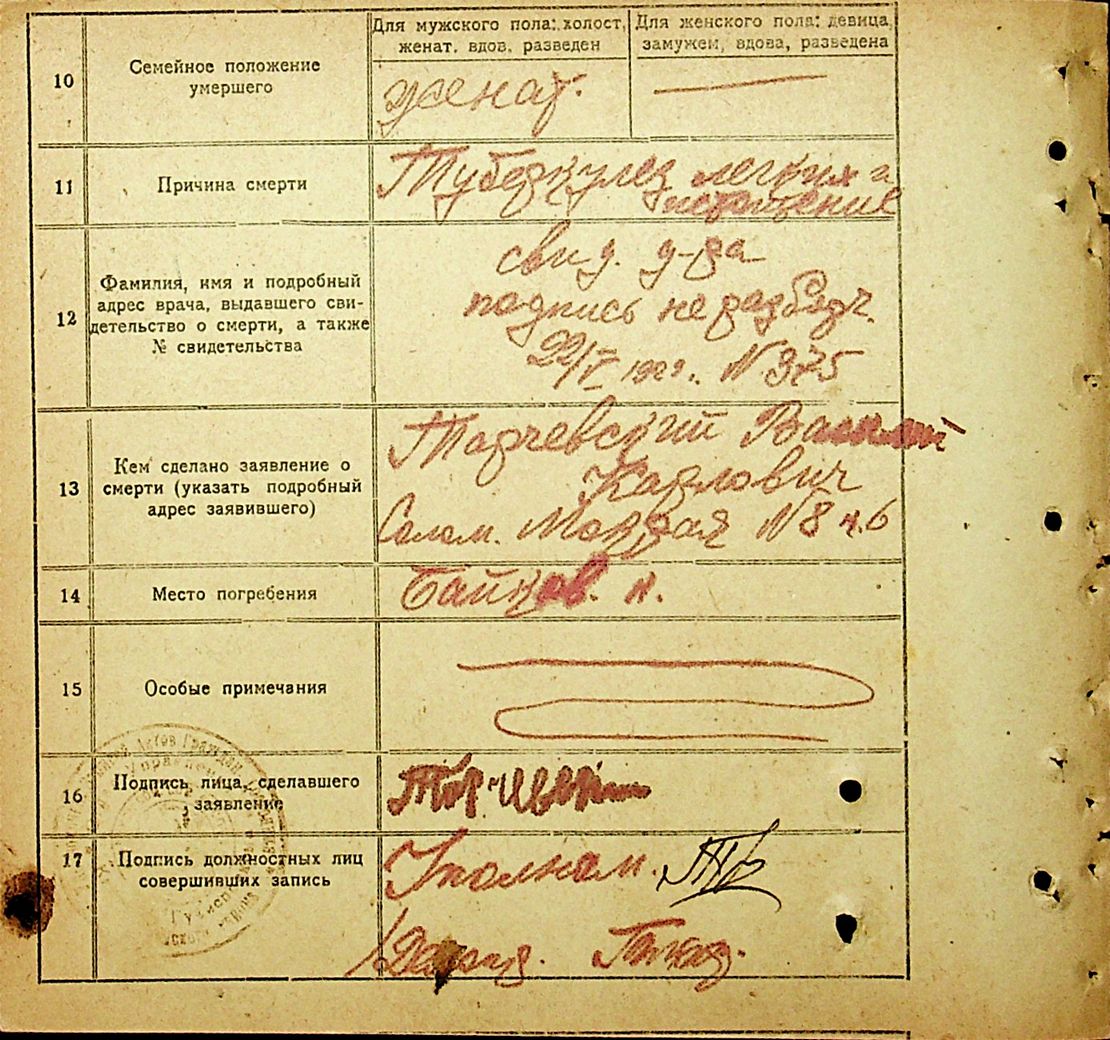 Для мужского пола: холост, женат, вдов, разведен
Для женского пола: девица, замужем, вдова, разведена
10
Семейное положение
умершего
женат.
11
Причина смерти
Туберкулез легких и
истощение
12
Фамилия, имя и подробный
адрес врача, выдавшего сви-
детельство о смерти, а также
№ свидетельства
свид. д-ра
подпись не разборч.
22/V N 375
13
Кем сделано заявление о
смерти (указать подробный
адрес заявившего)
Тарчевский
Карлович
Солом. N 8 к. 6
14
Место погребения
Байков. к.
15
Особые примечания
16
Подпись лица, сделавшего
заявление
17
Подпись должностных лиц
совершивших запись